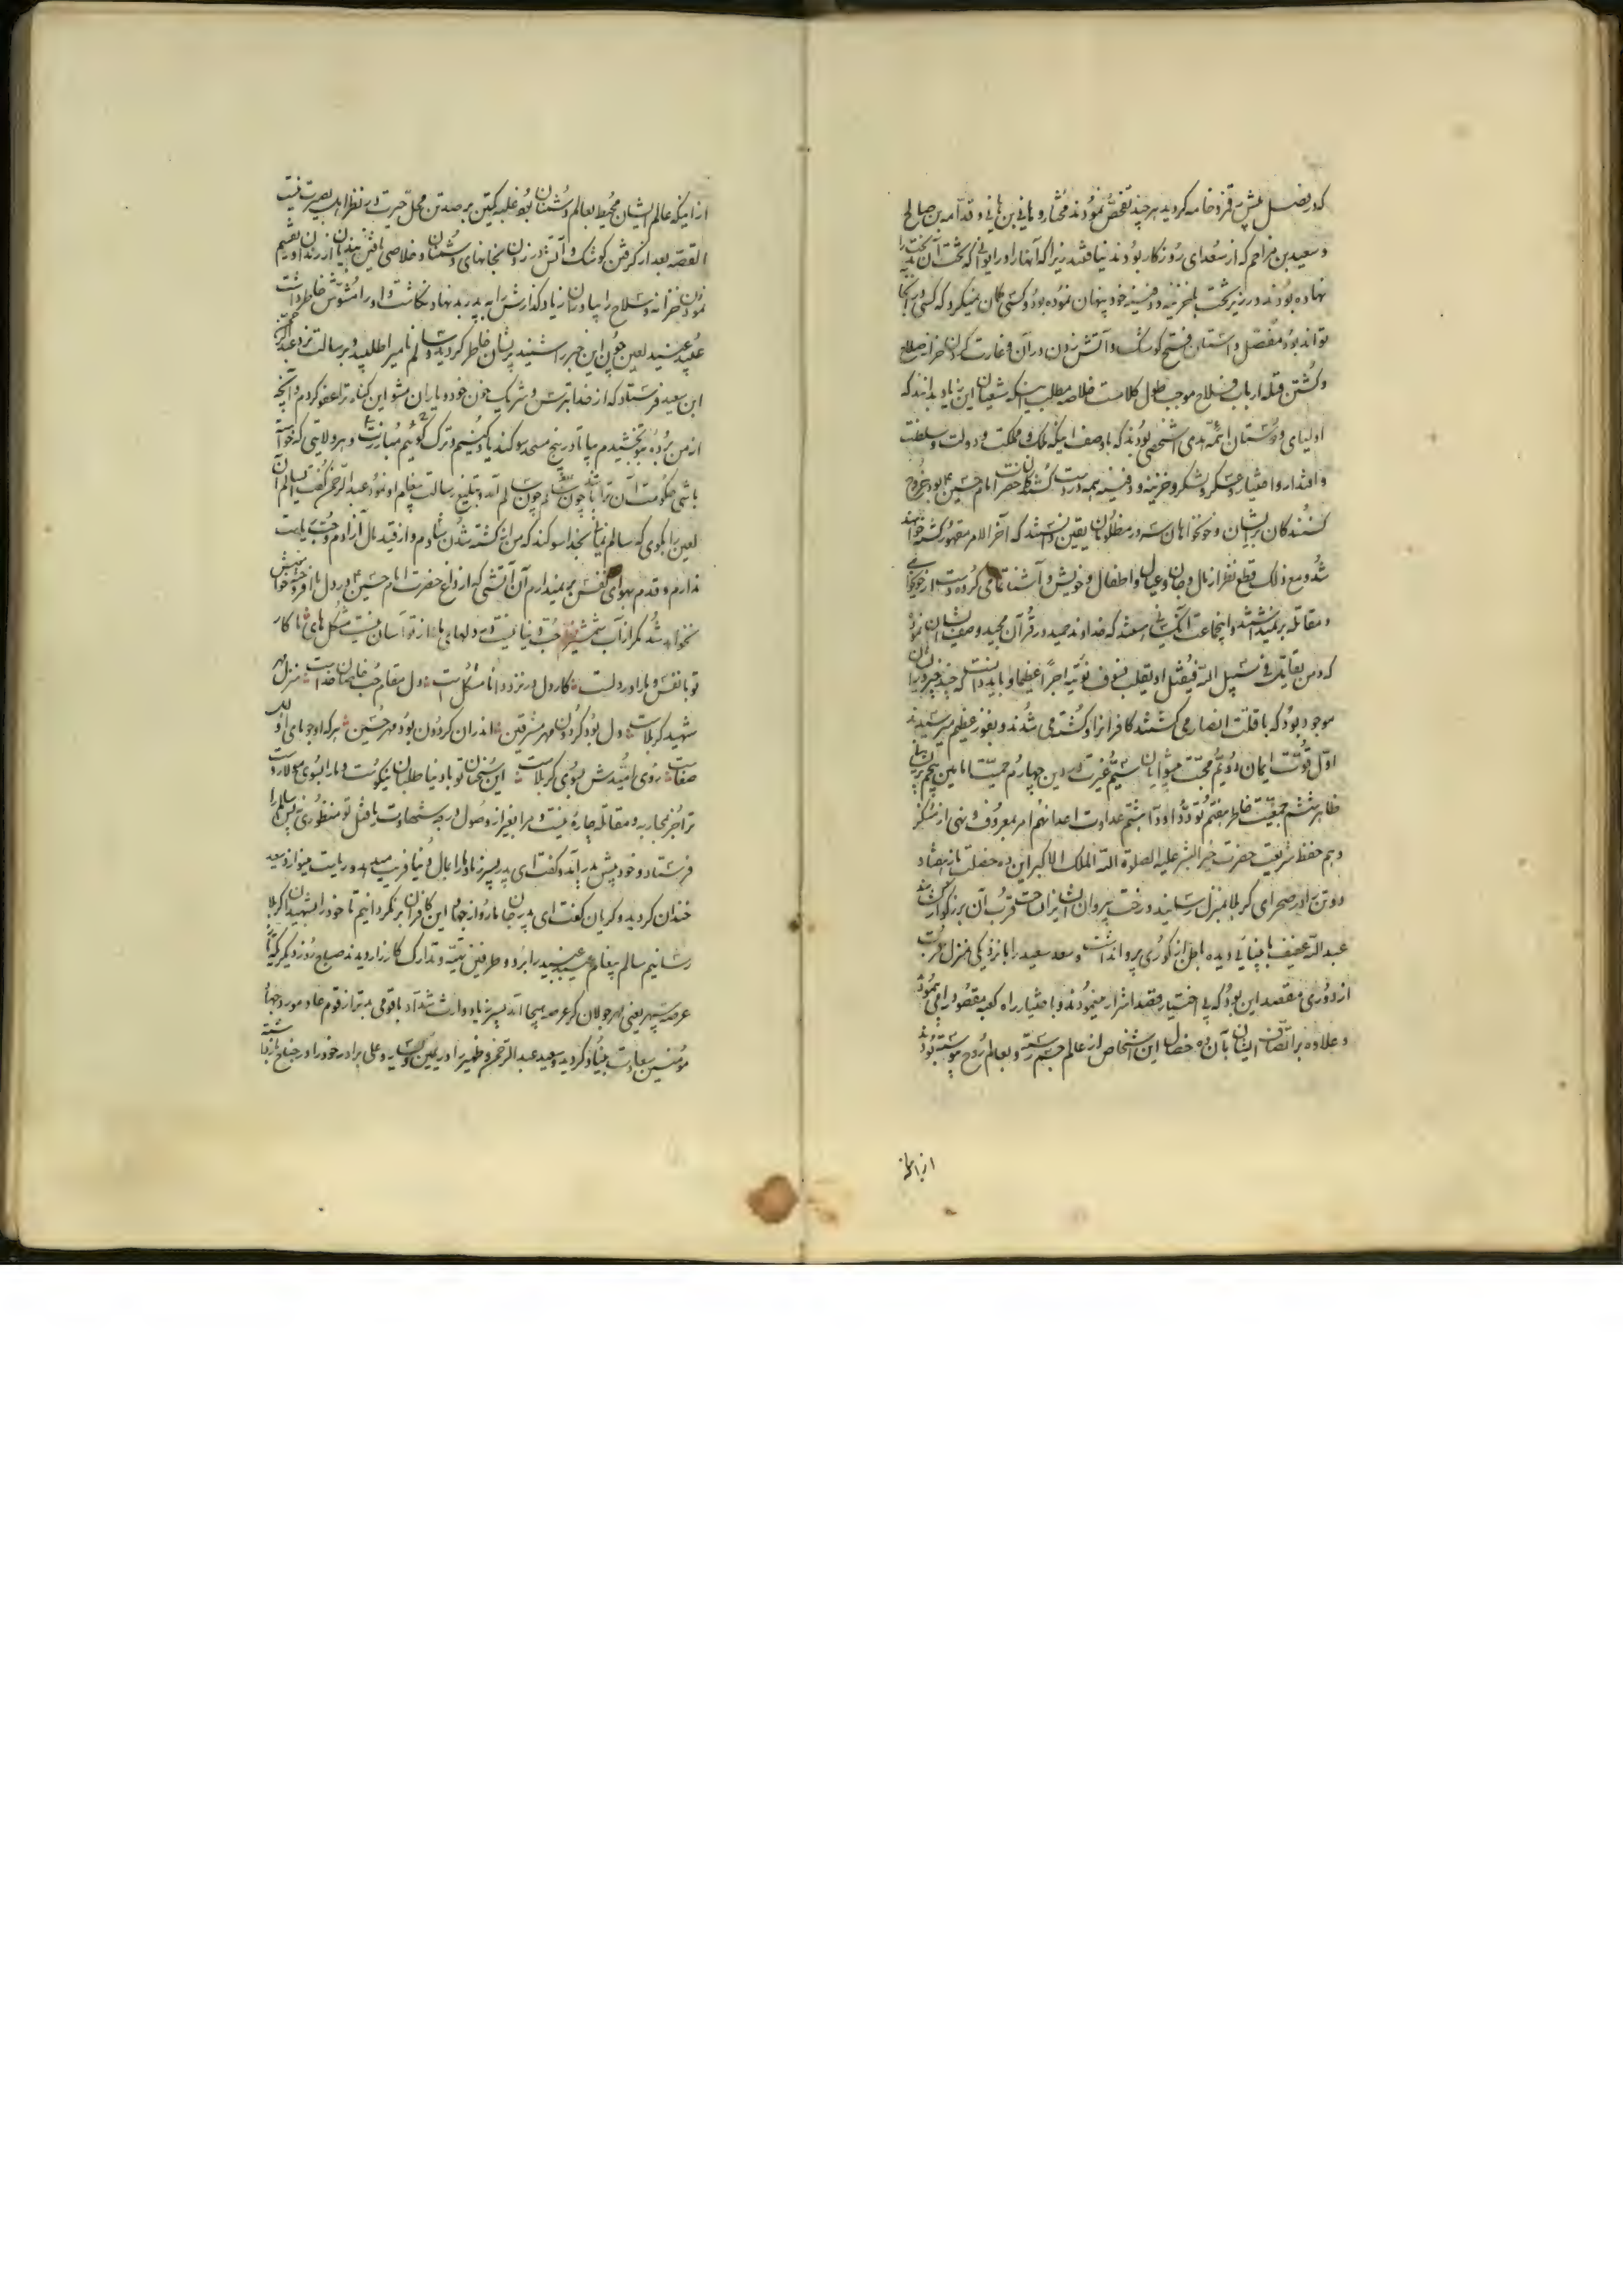 که در فصل پیش رقم زد خامه گردید هر چند تفحص نمودند مختار و هانی بن هانی و قدامه بن صالح
و سعید بن مزاحم که از سعدای روزگار بودند نیافتند زیرا که آنها را در ایوانی که تخت آن
نهاده بودند در زیر تخت خزینه و دفینه خود پنهان نموده بود و کسی گمان نمیکرد که کسی در آنجا
تواند بود مفصل داستان فتح کوشک و آتش زدن در آن و غارت کردن خزانه سلاح
و کشتن قتله ارباب سلاح موجب طول کلامست خلاصه مطلب اینکه شیعیان این زیاد بدانند که
اولیای دوستان ائمه هدی اشخاصی بودند که با وصف اینکه ملک و مملکت و دولت و سلطنت
و اقتدار و اختیار و عسکر و لشکر و خزینه و دفینه همه در دست کشندگان حضرت امام حسین ع بود خروج
کنندگان بر ایشان و خونخواهان سرور مظلومان یقین دانستند که آخر الامر مقهور کشته خواهند
شد و مع ذلک قطع نظر از مال و جان و عیال و اطفال و خویش و آشنا تمامی کرده دست از خونخواهی
و مقاتله بر نمیداشتند و اینجماعت آن کسانی هستند که خداوند حمید در قرآن مجید وصف ایشان نموده
که و من یقاتل فی سبیل الله فیقتل او یغلب فسوف نؤتیه اجرا عظیما و باید دانست که چند چیز در ایشان
موجود بود که با قلت انصار می کشتند کافران را و کشته می شدند و بفوز عظیم میرسیدند
اول قوت ایمان دویم محبت پیشوایان سیم غیرت در دین چهارم حمیت امامین پنجم
ظاهر ششم جمعیت خاطر هفتم تودد اودا هشتم عداوت اعدا نهم امر بمعروف و نهی از منکر
دهم حفظ شریعت حضرت خیر البشر علیه الصلوة الله الملک الاکبر این ده خصلت باز هفتاد
دو تن را در صحرای کربلا بمنزل رسانید و رخت پیروان ایشانرا بساحت قرب آن بزرگوار کشانید
عبدالله عفیف نابینا را دیده اهل از کوری پروا نداشت و سعد سعید را با نزدیکی منزل قربت
از دوری مقصد این بود که بی اختیار قصد اشرار مینمودند و باختیار راه کعبه مقصود را می پیمودند
و علاوه بر اتصاف ایشان بآن ده خصال این اشخاص از عالم جسم رسته و بعالم روح پیوسته بودند
از اینکه
از اینکه عالم ایشان محیط بعالم دشمنان بود غلبه یکتن بر صد تن محل حیرت در نظر اهل بصیرت نیست
القصه بعد از گرفتن کوشک و آتش در زدن بخانهای دشمنان و خلاصی یافتن بندیان از زندان و تقسیم
نمودن خزانه و سلاح را بیاوران زیاد گذارش را به پدر بد نهاد نگاشت و او را مشوش خاطر داشت
عبید عنید لعین چون این خبر را شنید پریشان خاطر گردیده و سالم نامیرا طلبید و برسالت نزد عبدالرحمن
ابن سعید فرستاد که از خدا بترس و شریک خون خود و یاران مشو این گناه ترا عفو کردم و آنچه
از من برده بتو بخشیدم بیا تا در پنج مسجد سوگند یاد کنیم و ترک گوئیم مبارزت و هر ولایتی که خواسته
باشی حکومت آن ترا باشد چون سالم آمد و تبلیغ رسالت پیغام او نمود عبدالرحمن گفت ای سالم آن
لعین را بگوی که سالم نمانی بخدا سوگند که من از کشته شدن شادم و از قید مال آزادم و حب ریاست
ندارم و قدم بهوای نفس بر نمیدارم آن آتشی که از داغ حضرت امام حسین ع در دل ما افروخته خاموش
نخواهد شد مگر از آب شمشیر حب دنیا نیست در دلهای ما از تو آسان نیست مشکل های ما کار
تو با نفس و ما را در دلست کار دل در نزد دانا مشکلست دل مقام حب خاصان خداست منزل مهر
شهید کربلاست دل بود گردون و مهر مشرقین اندران گردون بود مهر حسین هر که او جویای اولاد
صفاست روی امیدش بسوی کربلاست این سخنان تو با دنیا طلبان نیکوست و ما را بسوی مولا روست
ترا جز محاربه و مقاتله چاره نیست و مرا بغیر از وصول درجه شهادت یا قتل تو منظوری نه پس سالم را
فرستاد و خود پیش پدر آمد و گفت ای پدر پسر زیاد ما را بمال دنیا فریب میدهد و ریاست میوارد سعید
خندان گردید و گریان گفت ای پدر جان ما رو از جهاد این کافران بر نگردانیم تا خود را بشهیدان کربلا
رسانیم سالم پیغام بعبید عنید را برد و طرفین تهیه و تدارک کارزار دیدند صباح روز دیگر که
عرصه سپهر یعنی مهر جولان گر عرصه هیجا آمد پسر زیاد وارث شداد با قومی بدتر از قوم عاد مورد جهاد
مؤمنین سعادت بنیاد گردید و سعید عبدالرحمن و ظهیر را در یمین و یسار و علی برادر خود را در جناح باز داشته